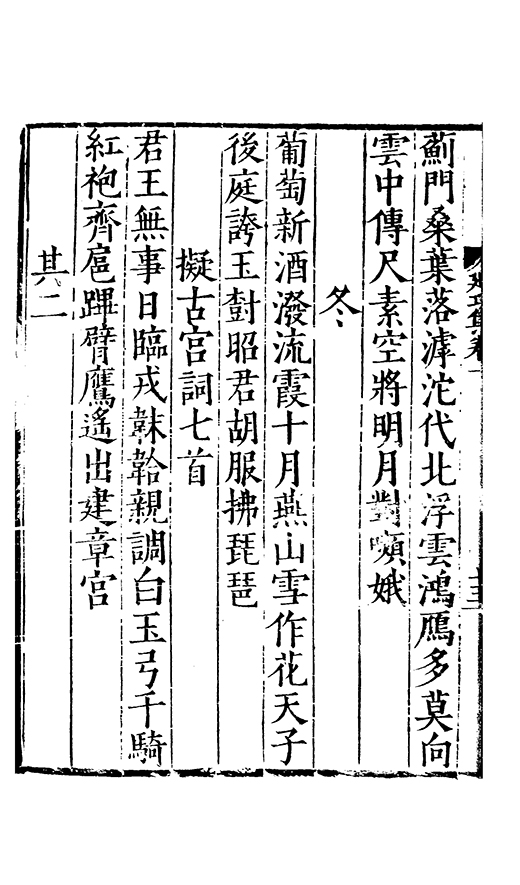 薊門桑葉落滹沱代北浮雲鴻鴈多莫向
雲中傳尺素空將明月對嚬娥
冬
葡萄新酒潑流霞十月燕山雪作花天子
後庭誇玉對昭君胡服拂琵琶
擬古宮詞七首
君王無事日臨戎韎韐親調白玉弓千騎
紅袍齊扈蹕臂鷹遙出建章宮
其二